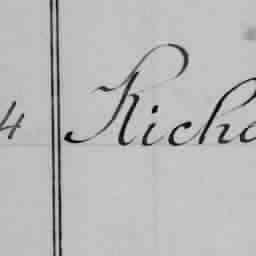 4 Riche